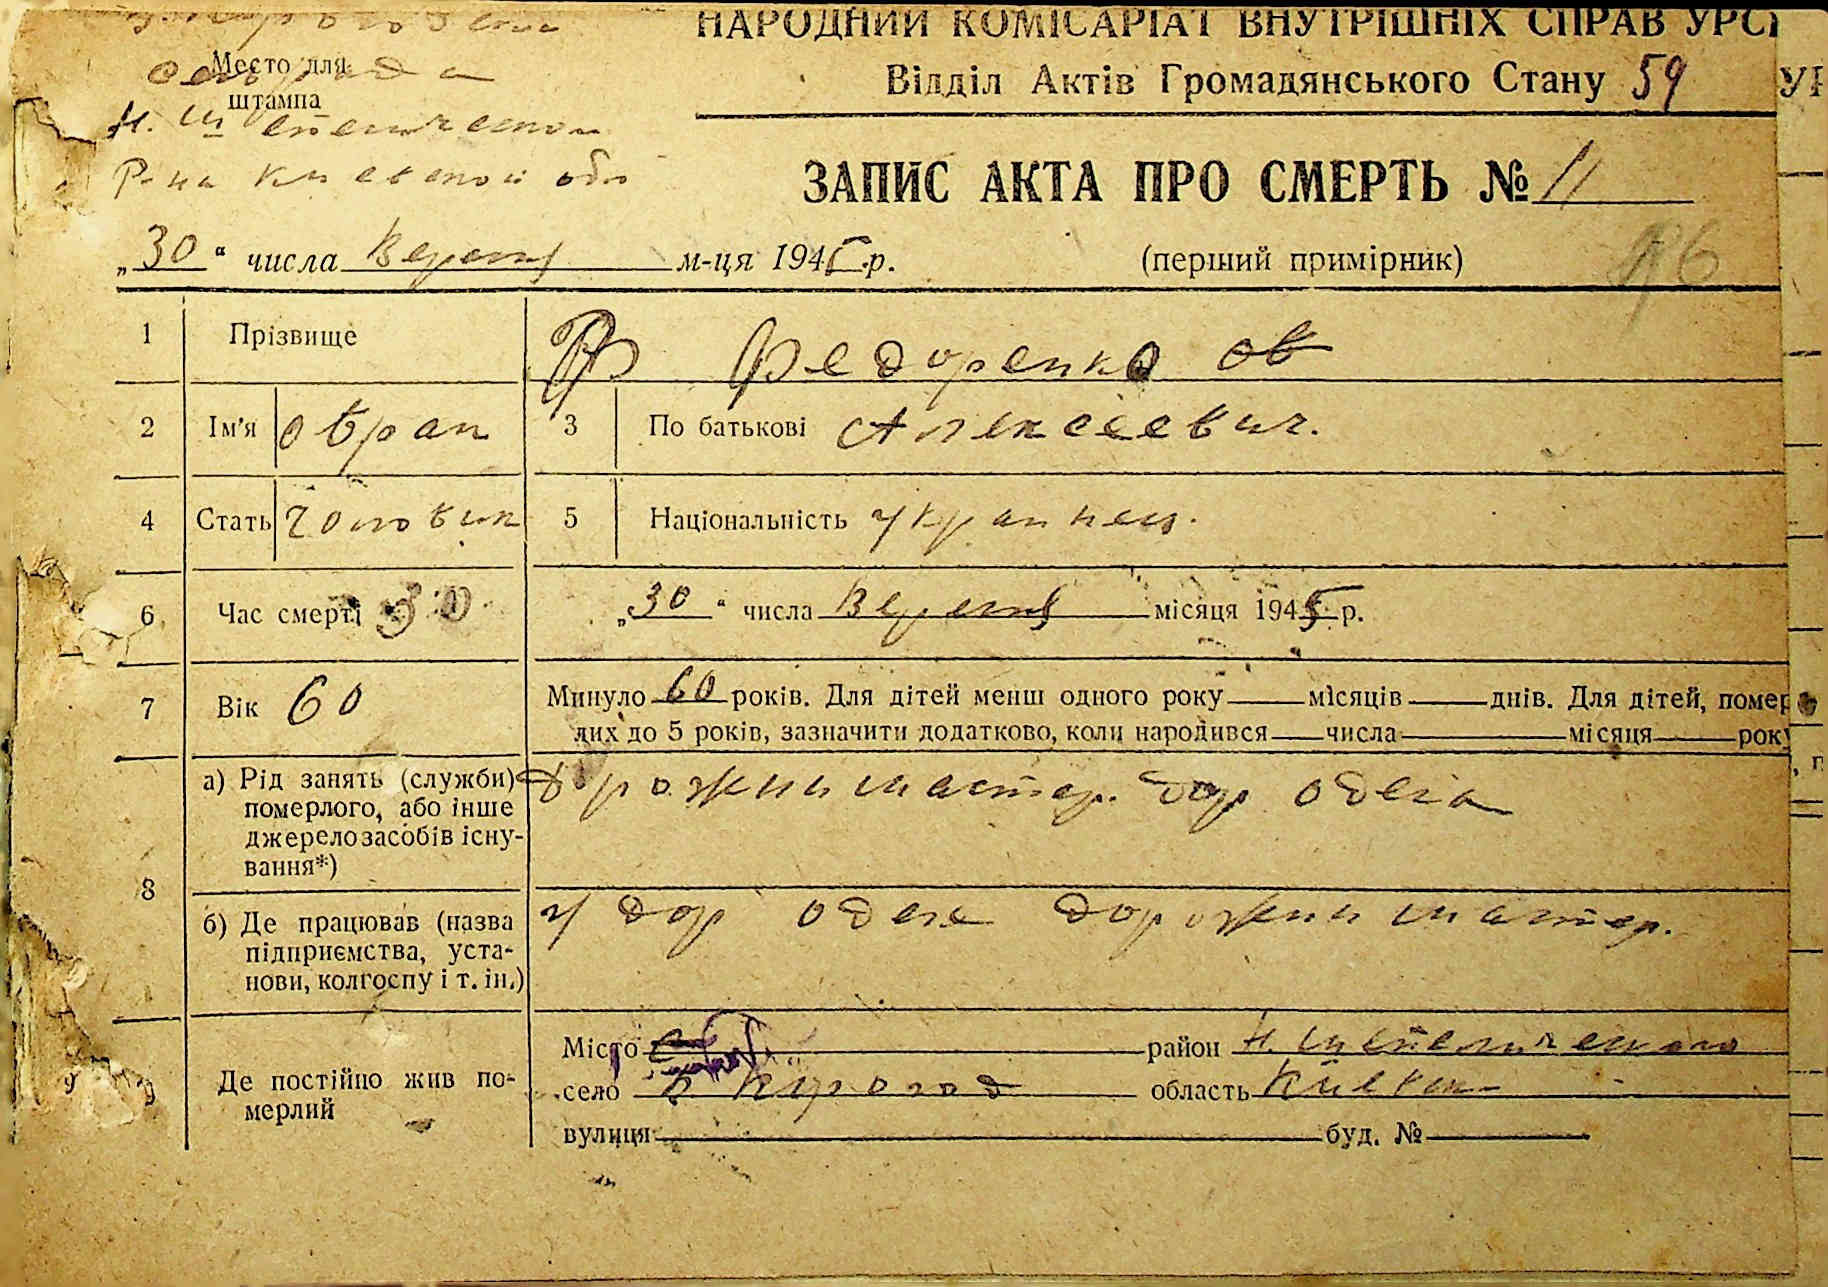 сельрада
Место для
штампа
Н. Шепеличского
Р-на Киевской обл
НАРОДНИЙ КОМІСАРІАТ ВНУТРІШНІХ СПРАВ УРСР
Відділ Актів Громадянського Стану 59
ЗАПИС АКТА ПРО СМЕРТЬ № 11
„30“ числа Вересня м-ця 1945 р. (перший примірник)
1 Прізвище Федоренко
2 Ім'я 3 По батькові Алексеевич.
4 Стать Чоловик 5 Національність Украинец.
6 Час смерті 30 „30“ числа Вересня місяця 1945 р.
7 Вік 60 Минуло 60 років. Для дітей менш одного року місяців днів. Для дітей, помер
лих до 5 років, зазначити додатково, коли народився числа місяця року
8 а) Рід занять (служби) померлого, або інше джерело засобів існування*) дорожни мастер. дор одела
б) Де працював (назва підприємства, установи, колгоспу і т. ін.) у дор оделе дорожни мастер.
9 Де постійно жив померлий
Місто район Н. Шепеличского
село область Київска
вулиця буд. №